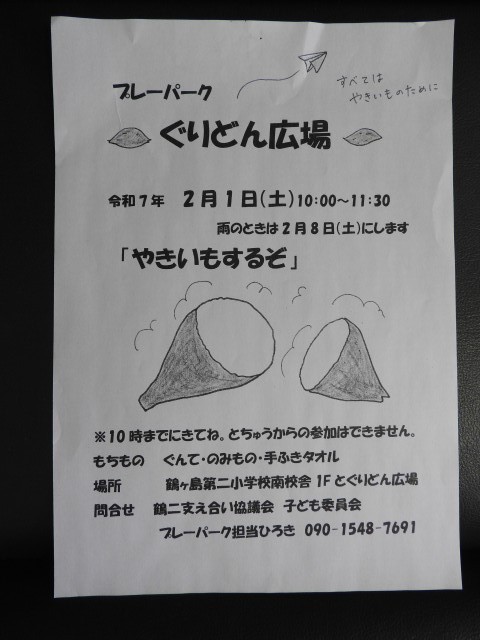 プレーパーク
すべては
やきいものために
ぐりどん広場
令和7年 2月1日(土)10:00~11:30
雨のときは2月8日(土)にします
「やきいもするぞ」
※10時までにきてね。とちゅうからの参加はできません。
もちもの ぐんて・のみもの・手ふきタオル
場所 鶴ヶ島第二小学校南校舎1Fとぐりどん広場
問合せ 鶴二支え合い協議会 子ども委員会
プレーパーク担当ひろき 090-1548-7691